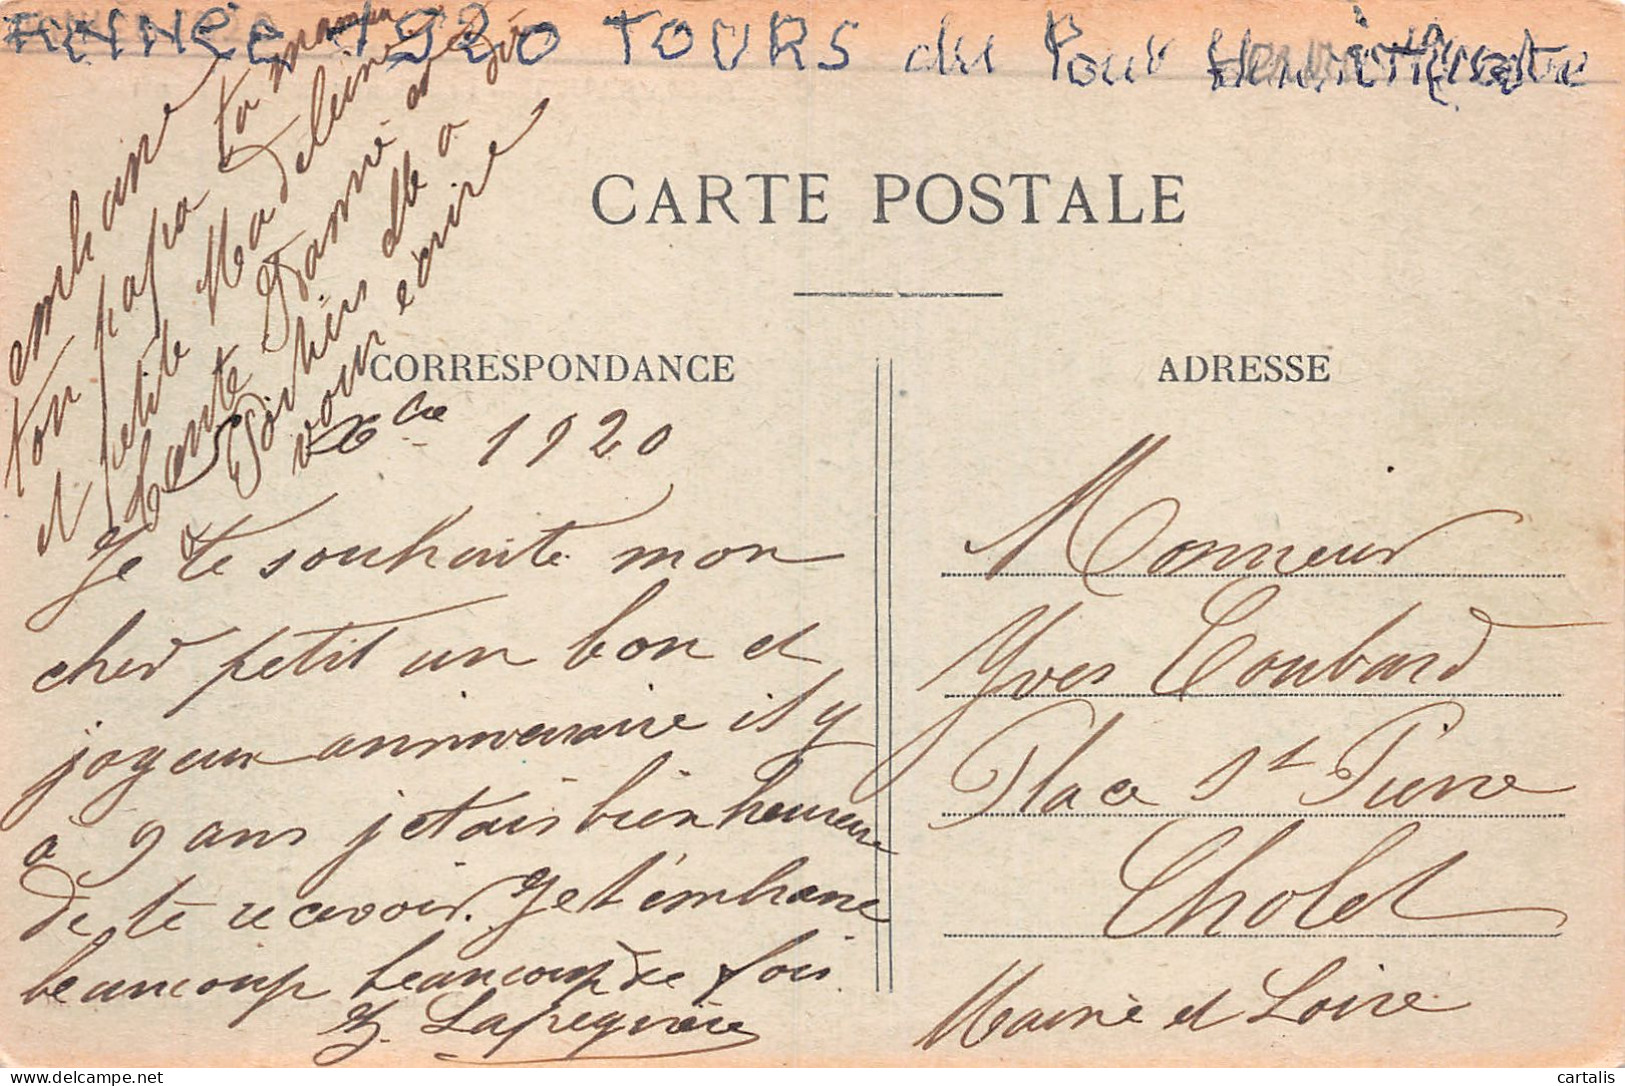 ANNÉE 1920 TOURS du Pour
CARTE POSTALE
CORRESPONDANCE
ADRESSE
Xbre 1920
Je te souhaite mon
cher petit un bon et
joyeux anniversaire il y
a 9 ans j'etais bien heureux
de te recevoir. Je t'embrasse
beaucoup beaucoup de fois
Y. Lapequière
embrasse
ton papa ta maman
et petite Madeleine
tante Jeanne et
vous ecrire
Monsieur
Yves Coubard
Place St Pierre
Cholet
Maine et Loire
cartalis